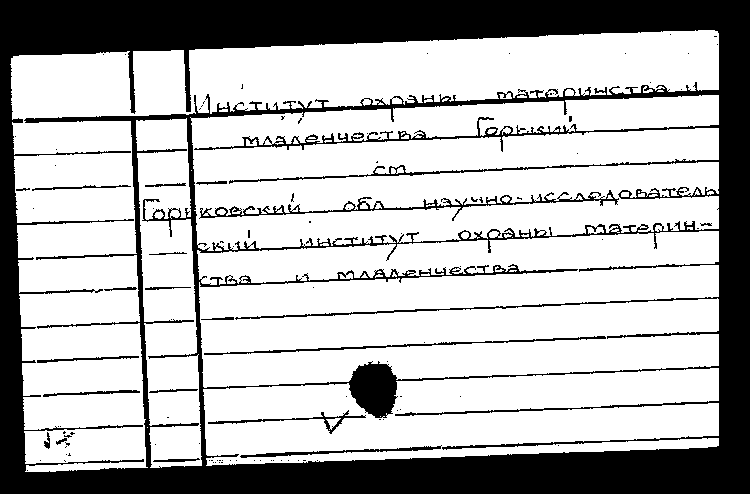 Институт охраны материнства и
младенчества. Горький.
см.
Горьковский обл научно-исследователь-
ский институт охраны материн-
ства и младенчества.